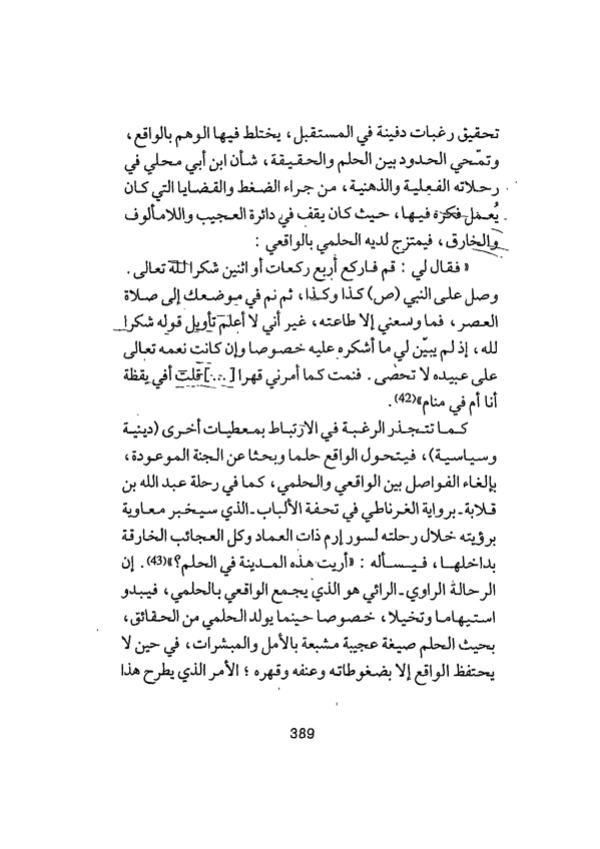 تحقيق رغبات دفينة في المستقبل، يختلط فيها الوهم بالواقع،
وتمّحي الحدود بين الحلم والحقيقة، شأن ابن أبي محلي في
رحلاته الفعلية والذهنية، من جراء الضغط والقضايا التي كان
يُعمل فكره فيها، حيث كان يقف في دائرة العجيب واللامألوف
والخارق، فيمتزج لديه الحلمي بالواقعي :
« فقال لي : قم فاركع أربع ركعات أو اثنين شكرا لله تعالى .
وصل على النبي (ص) كذا وكذا، ثم نم في موضعك إلى صلاة
العصر، فما وسعني إلا طاعته، غير أني لا أعلم تأويل قوله شكرا
لله، إذ لم يبيّن لي ما أشكره عليه خصوصا وإن كانت نعمه تعالى
على عبيده لا تحصى . فنمت كما أمرني قهرا [...] قلت أفي يقظة
أنا أم في منام»(42).
كما تتجذر الرغبة في الارتباط بمعطيات أخرى (دينية
وسياسية)، فيتحول الواقع حلما وبحثا عن الجنة الموعودة،
بإلغاء الفواصل بين الواقعي والحلمي، كما في رحلة عبد الله بن
قلابة ـ برواية الغرناطي في تحفة الألباب ـ الذي سيخبر معاوية
برؤيته خلال رحلته لسور إرم ذات العماد وكل العجائب الخارقة
بداخلها، فيسأله : «أريت هذه المدينة في الحلم؟»(43). إن
الرحالة الراوي ـ الرائي هو الذي يجمع الواقعي بالحلمي، فيبدو
استيهاما وتخيلا، خصوصا حينما يولد الحلمي من الحقائق،
بحيث الحلم صيغة عجيبة مشبعة بالأمل والمبشرات، في حين لا
يحتفظ الواقع إلا بضغوطاته وعنفه وقهره ؛ الأمر الذي يطرح هذا
389